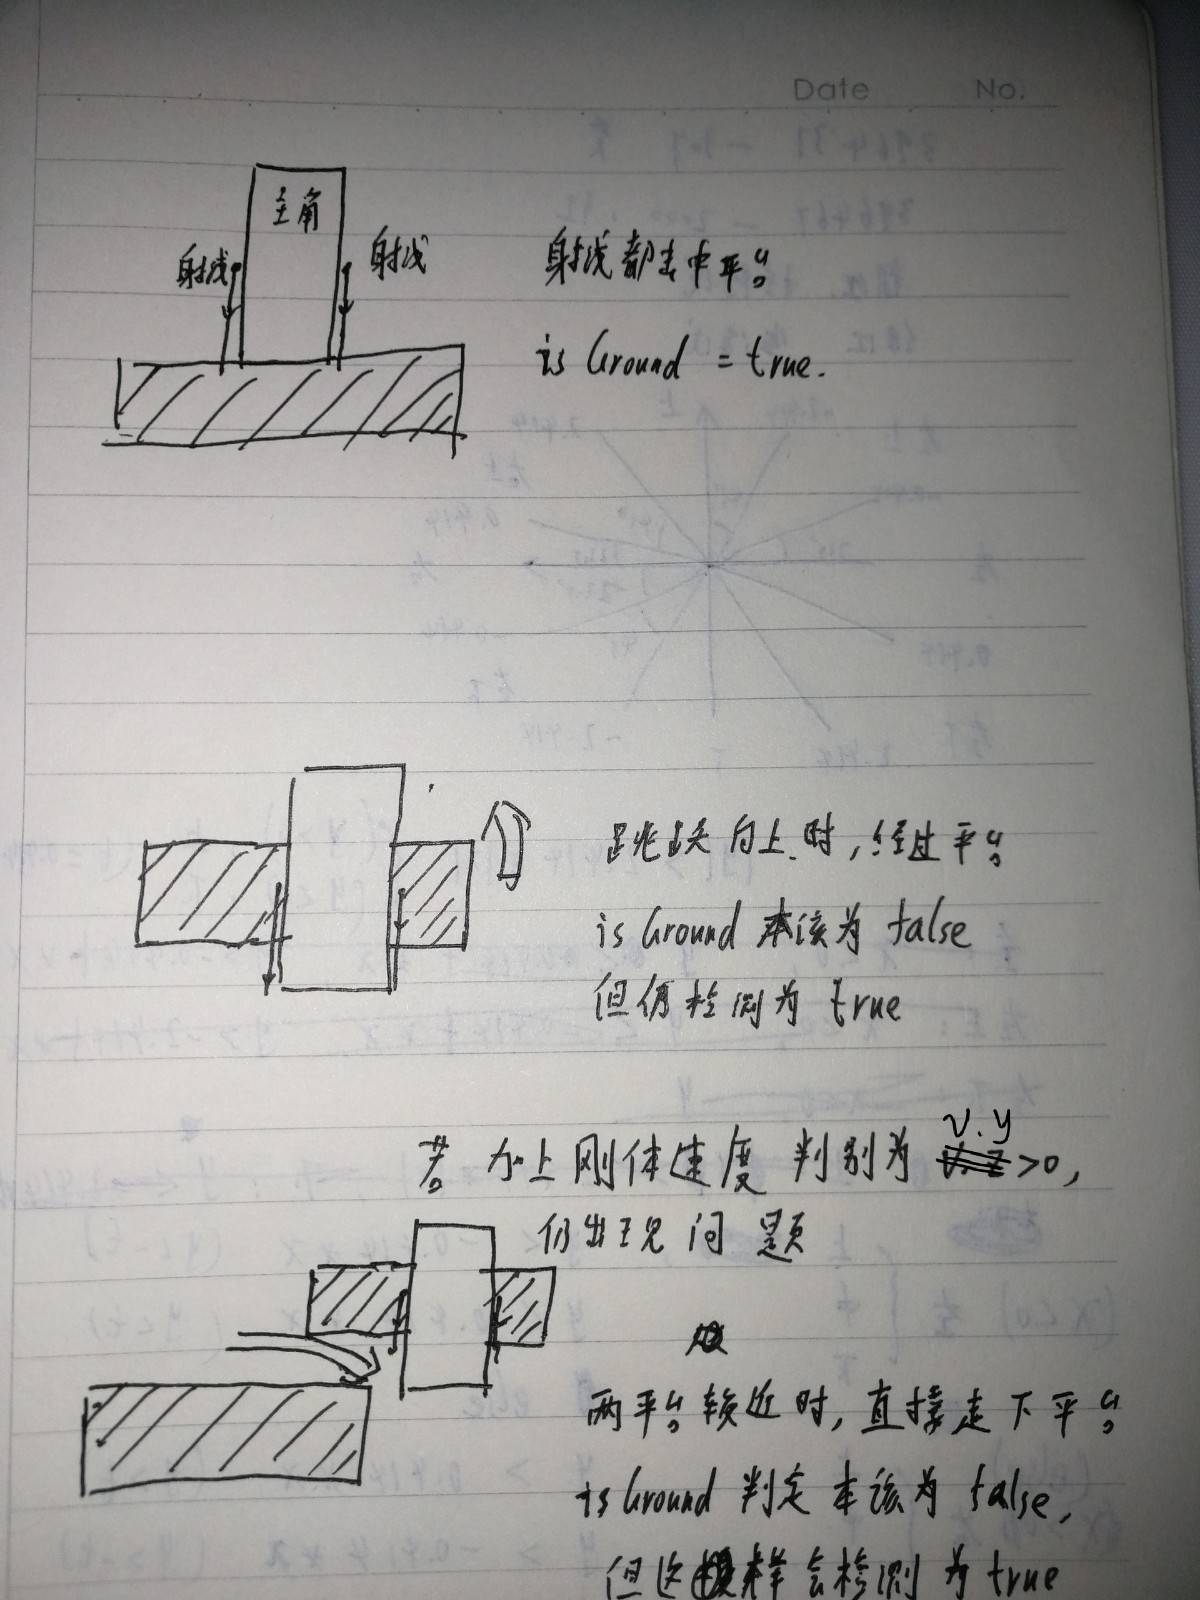 Date No.
主角
射线 射线
射线都击中平台
is Ground = true.
跳跃向上时,经过平台
is Ground 本该为 false
但仍检测为 true
若加上刚体速度判别为 v.y >0,
仍出现问题
两平台较近时,直接走下平台
is Ground 判定本该为 false,
但这样会检测为 true